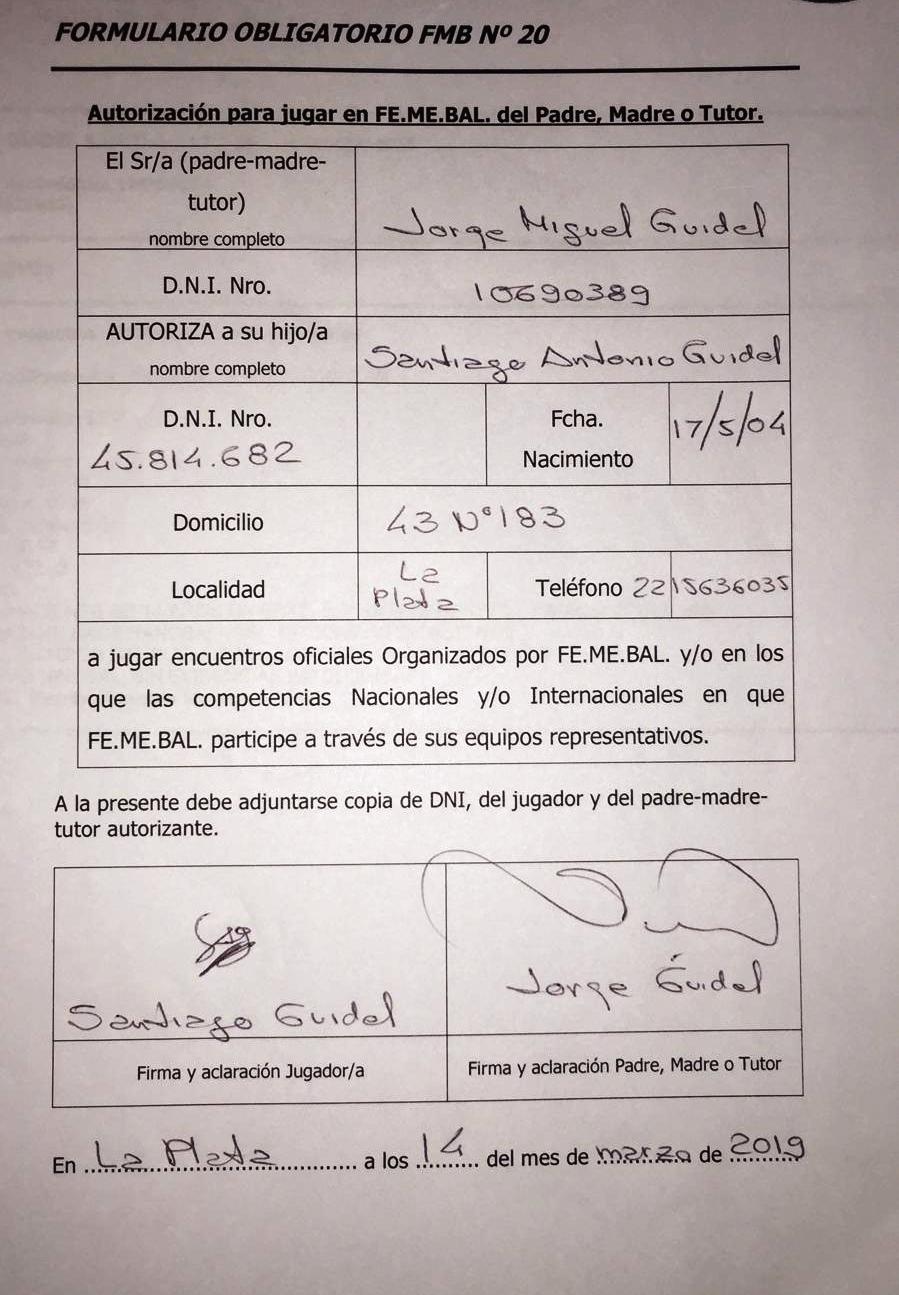 FORMULARIO OBLIGATORIO FMB Nº 20
Autorización para jugar en FE.ME.BAL. del Padre, Madre o Tutor.
El Sr/a (padre-madre-
tutor)
nombre completo
Jorge Miguel Guidel
D.N.I. Nro.
10690389
AUTORIZA a su hijo/a
nombre completo
Santiago Antonio Guidel
D.N.I. Nro.
45.814.682
Fcha.
Nacimiento
17/5/04
Domicilio
43 Nº 183
Localidad
La
Plata
Teléfono 2215636035
a jugar encuentros oficiales Organizados por FE.ME.BAL. y/o en los
que las competencias Nacionales y/o Internacionales en que
FE.ME.BAL. participe a través de sus equipos representativos.
A la presente debe adjuntarse copia de DNI, del jugador y del padre-madre-
tutor autorizante.
Santiago Guidel
Jorge Guidel
Firma y aclaración Jugador/a
Firma y aclaración Padre, Madre o Tutor
En La Plata a los 14 del mes de marzo de 2019